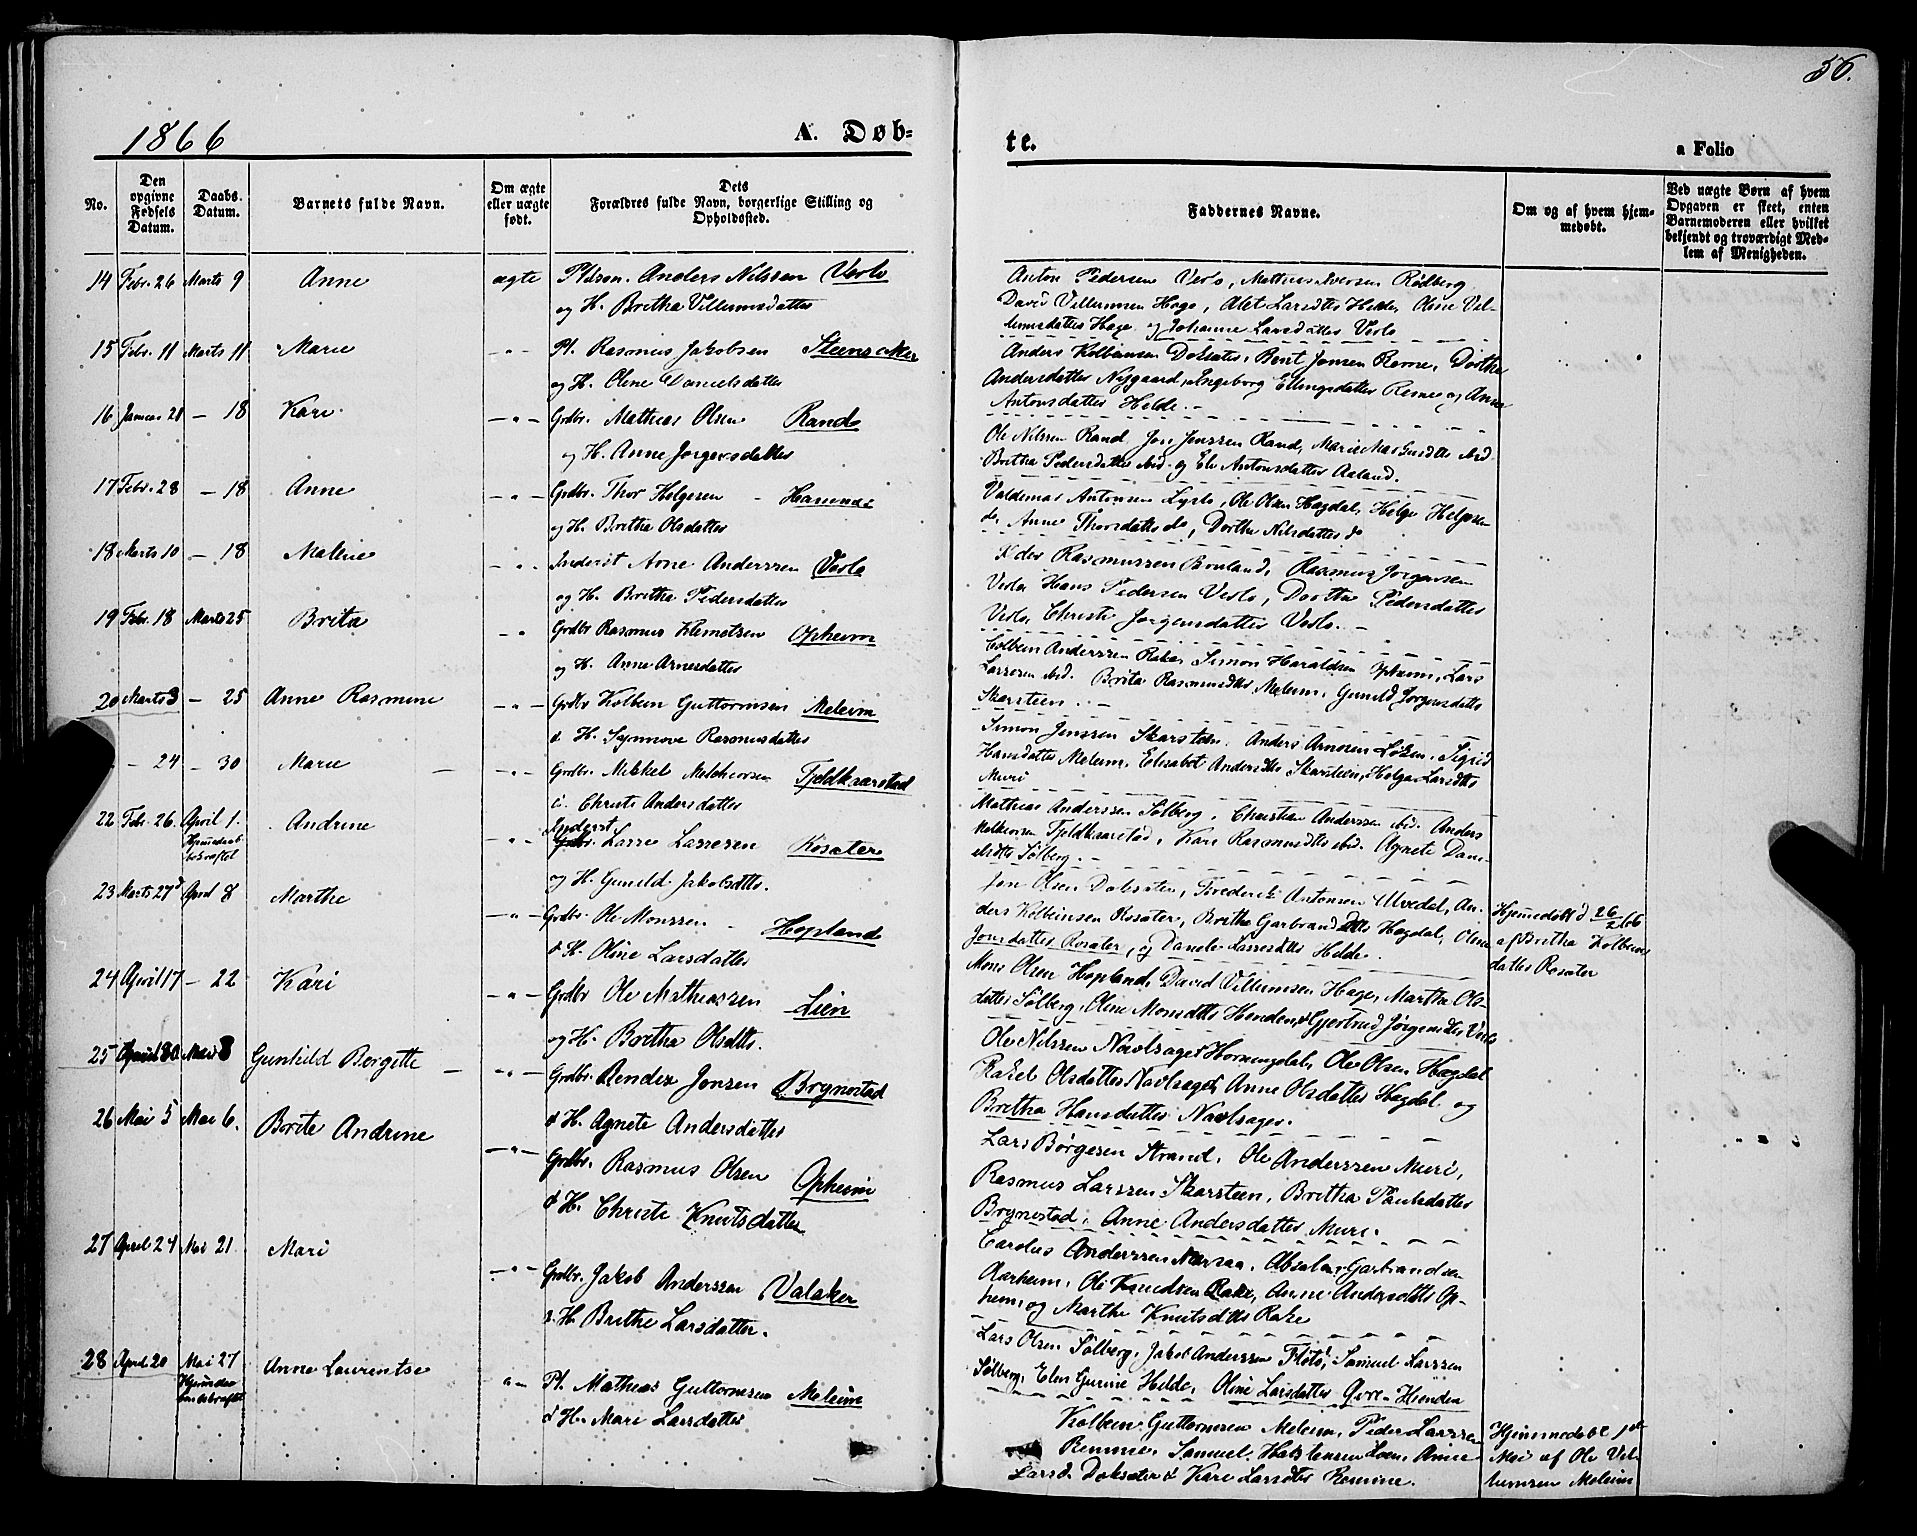 56.
1866
A. Døb-
te.
a Folio
No.
Den opgivne Fødsels Datum.
Daabs-Datum.
Barnets fulde Navn.
Om ægte eller uægte født.
Dets Forældres fulde Navn, borgerlige Stilling og Opholdssted.
Faddernes Navne.
Om og af hvem hjemmedøbt.
Ved uægte Børn af hvem Opgaven er skeet, enten Barnemoderen eller hvilket bekjendt og troværdigt Medlem af Menigheden.
14 Febr. 26 Marts 9 Anne ægte Anders Nilssen Veslo
og H. Britha Villumsdatter
Anton Pedersen Veslo, Mathias Iversen Rødberg,
David Villumsen Hage, Alet Larsdtts Helde, Oline Vil-
lumsdatter Hage og Johanne Larsdatter Veslo
15 Febr. 11 Marts 11 Marie - " - Pl. Rasmus Jakobsen Steensaker
og H. Oline Danielsdatter
Anders Kolbeinsen Doksater, Bent Jonsen Reme, Dorthe
Andersdatter Nygaard, Ingeborg Ellingsdatter Reme og Anne
Antonsdatter Helde.
16 Januar 28 - 18 Kari - " - Grdbr. Mathias Olsen Rand
og H. Anne Jørgensdatter
Ole Nilssen Rand, Jon Jonssen Rand, Marie Ibid
Britha Pedersdatter ibid. og Eli Antonsdatter Aaland.
17 Febr. 28 - 18 Anne - " - Grdbr. Thor Helgesen
og H. Britha Olsdatter
Valdemar Antonsen Lyslo, Ole Olsen Hagdal, Helge Helgesen
do, Anne Thorsdatter do, Dorthe Nilsdatter do
18 Marts 10 - 18 Malene - " - Inderst Arne Anderssen Veslo
og H. Britha Pedersdatter
Peder Rasmussen Bruland, Rasmus Jørgensen
Veslo, Hans Pedersen Veslo, Dorthe Pedersdatter
Veslo, Christi Jørgensdatter Veslo.
19 Febr. 18 Marts 25 Brita - " - Grdbr Rasmus Klemetsen Opheim
og H. Anne Arnesdatter
Colbein Anderssen Rake, Simon Haraldsen Opheim, Lars
Larssen ibid. Brita Rasmusdtts Meleim, Gunild Jørgensdatter
Skarsteen.
20 Marts 3 - 25 Anne Rasmine - " - Grdbr Kolbein Guttormsen Meleim
& H. Synnøve Rasmusdatter
Simon Jenssen Skarsteen, Anders Arnesen Løken, Sigrid
Hansdatter Meleim, Elisabet Andersdtts Skarsteen, Helga Larsdtts
Muri
- 24 - 30 Marie - " - Grdbr. Mikkel Melchiorsen Fjeldkaarstad
& Christi Andersdatter
Mathias Anderssen Sølberg, Christian Anderssen ibid. Anders
Melkiorsen Fjeldkaarstad, Kari Rasmusdtts ibid. Agnete Dani-
elsdtts Sølberg.
22 Febr. 26. April 1. Andrine - " - Inderst Lasse Lassesen Rosater
og H. Gunild Jakobsdtts.
Hjemmedaab bekræftet
Jon Olsen Doksater, Frederik Antonsen Alvedal, An-
ders Kolbeinsen Rosater, Britha Garbrandsdtts Hagdal, Oline
Jonsdatter Rosater, og Danele Lassesdtts Helde.
Hjemmedøbt d 26/2 66
af Britha Kolbeins
datter Rosater
23 Marts 27d April 8 Marthe - " - Grdbr. Ole Monssen Hopland
& H. Oline Larsdatter
Mons Olsen Hopland, David Villumsen Hage, Martha Ols-
datter Sølberg, Oline Monsdtts Henden & Gjertrud Jørgensdtts Veslo
24 April 17 - 22 Kari - " - Grdbr Ole Mathiassen Lien
og H. Britha Olsdtts.
Ole Nilssen Navlsager Hornengdal, Ole Olsen Hagdal
Rakel Olsdatter Navlsager, Anne Olsdatter Hagdal og
Britha Hansdatter Navlsager.
25 April 30 Mai 3 Gunhild Bergitte - " - Grdbr. Rendez Jonsen Brynestad
& H. Agnete Andersdatter
Lars Børgesen Strand, Ole Anderssen Muri,
Rasmus Larssen Skarsteen, Britha Paulsdatter
Brynestad, Anne Andersdatter Muri.
26 Mai 5 Mai 6. Brite Andrine - " - Grdbr. Rasmus Olsen Opheim
& H. Christi Knutsdatter
Carolus Anderssen, Absalon Garbrandsen
Aarheim, Ole Knudsen Rake, Anne Andersdtts Op-
heim, og Marthe Knutsdtts Rake
27 April 24 Mai 21. Mari - " - Grdbr. Jakob Anderssen Valaker
& H. Brithe Larsdatter.
Lars Olsen Sølberg, Jakob Anderssen Floto, Samuel Larssen
Sølberg, Elen Gurine Helde, Oline Larsdatter Øvre-Henden
28 April 20 Mai 27 Anne Laurentse " - Pl. Mathias Guttormsen Meleim
& H. Mari Larsdatter
Kolbein Guttormsen Meleim, Peder Larssen
Remme, Samuel Loen, Anne
Larsd. Doksater & Kari Larsdtts Remme.
Hjemmedøbt 1ste
Mai af Ole Vil-
lumsen Meleim